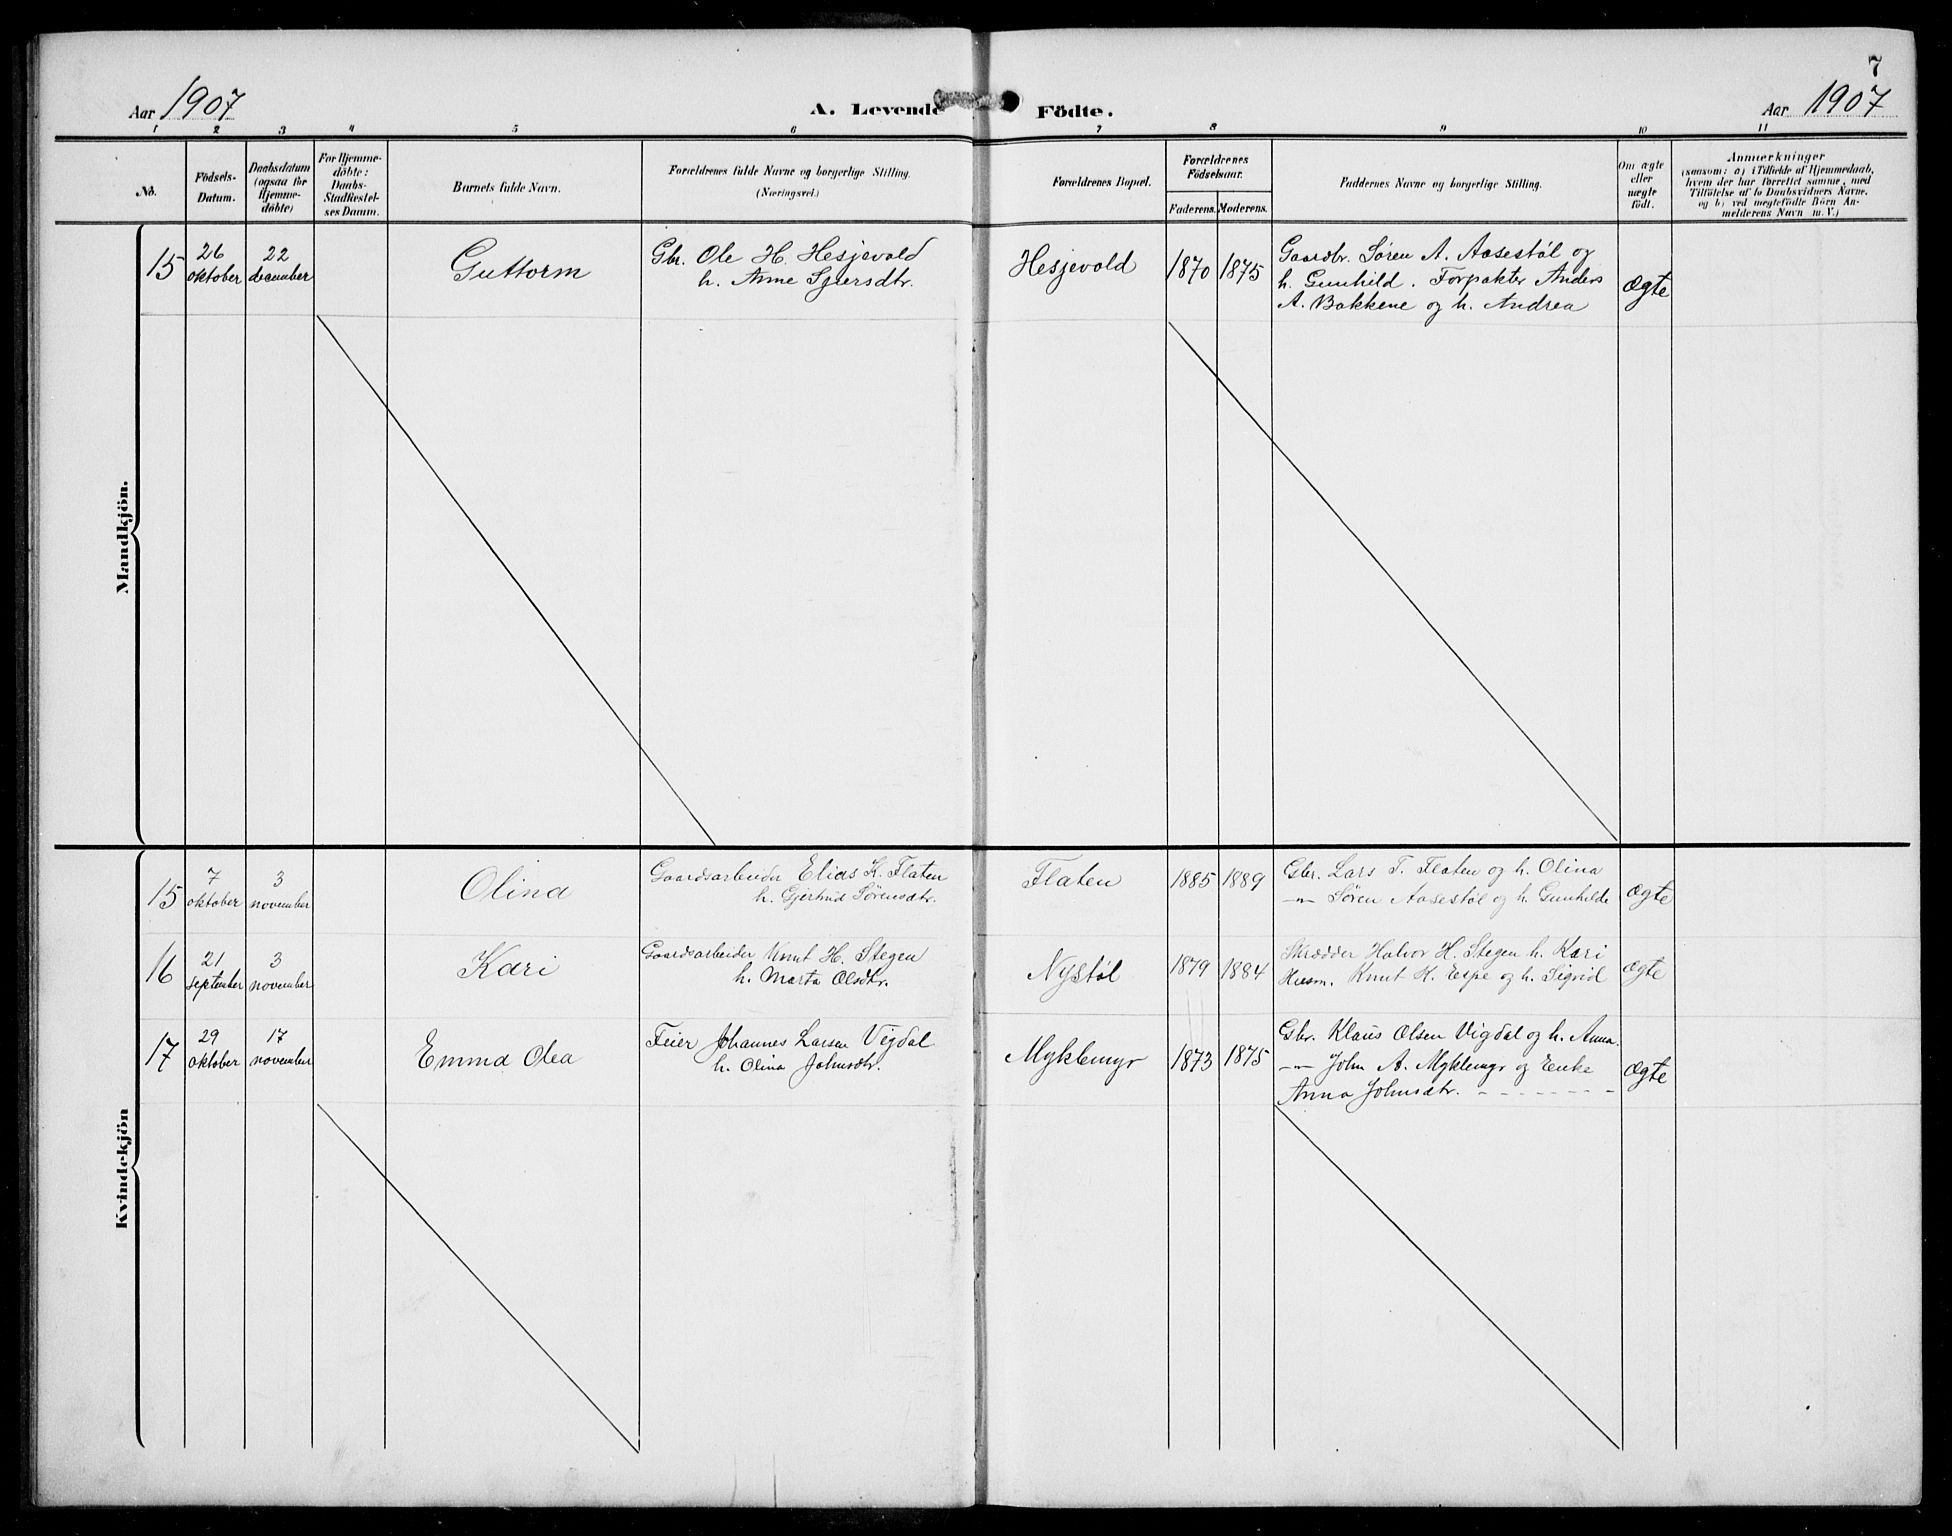 7
Aar 1907
A. Levende Födte.
Aar 1907
1 2 3 4 5 6 7 8 9 10 11
No.
Födsels-
Datum.
Daabsdatum
(ogsaa for
Hjemme-
döbte)
For Hjemme-
döbte:
Daabs-
Stadfæstel-
ses Datum.
Barnets fulde Navn.
Forældrenes fulde Navne og borgerlige Stilling.
(Næringsvei.)
Forældrenes Bopæl.
Forældrenes
Födselsaar.
Faderens. Moderens.
Faddernes Navne og borgerlige Stilling.
Om ægte
eller
uægte
födt.
Anmærkninger
(saasom: a) i Tilfælde af Hjemmedaab,
hvem der har forrettet samme, med
Tilföielse af to Daabsvidners Navne,
og b) ved uægtefödte Börn An-
melderens Navn m. V.)
Mandkjön.
15
26
oktober
22
december
Guttorm
Gbr. Ole H. Hesjevold
h. Anne Sjursdtr.
Hesjevold
1870
1875
Gaardbr. Søren A. Aasestøl og
h. Gunhild. Forpakter Anders
A. Bakkene og h. Andrea
Ægte
Kvindekjön
15
7
oktober
3
november
Olina
Gaardsarbeider Elias K. Flaten
h. Gjertrud Sørensdtr.
Flaten
1885
1889
Gbr. Lars T. Flaten og h. Olina
—"— Søren Aasestøl og h. Gunhilde
Ægte
16
21
september
3
november
Kari
Gaardsarbeider Knut H. Stegen
h. Marta Olsdtr.
Nystøl
1879
1884
Skrædder Halvor H. Stegen h. Kari
Husm. Knut K. Espe og h. Sigrid
Ægte
17
29
oktober
17
november
Emma Olea
Feier Johannes Larsen Vigdal
h. Olina Johnsdtr.
Myklemyr
1873
1875
Gbr. Klaus Olsen Vigdal og h. Anna.
—"— John A. Myklemyr og Enke
Anna Johnsdtr. - - - - - - - -
Ægte